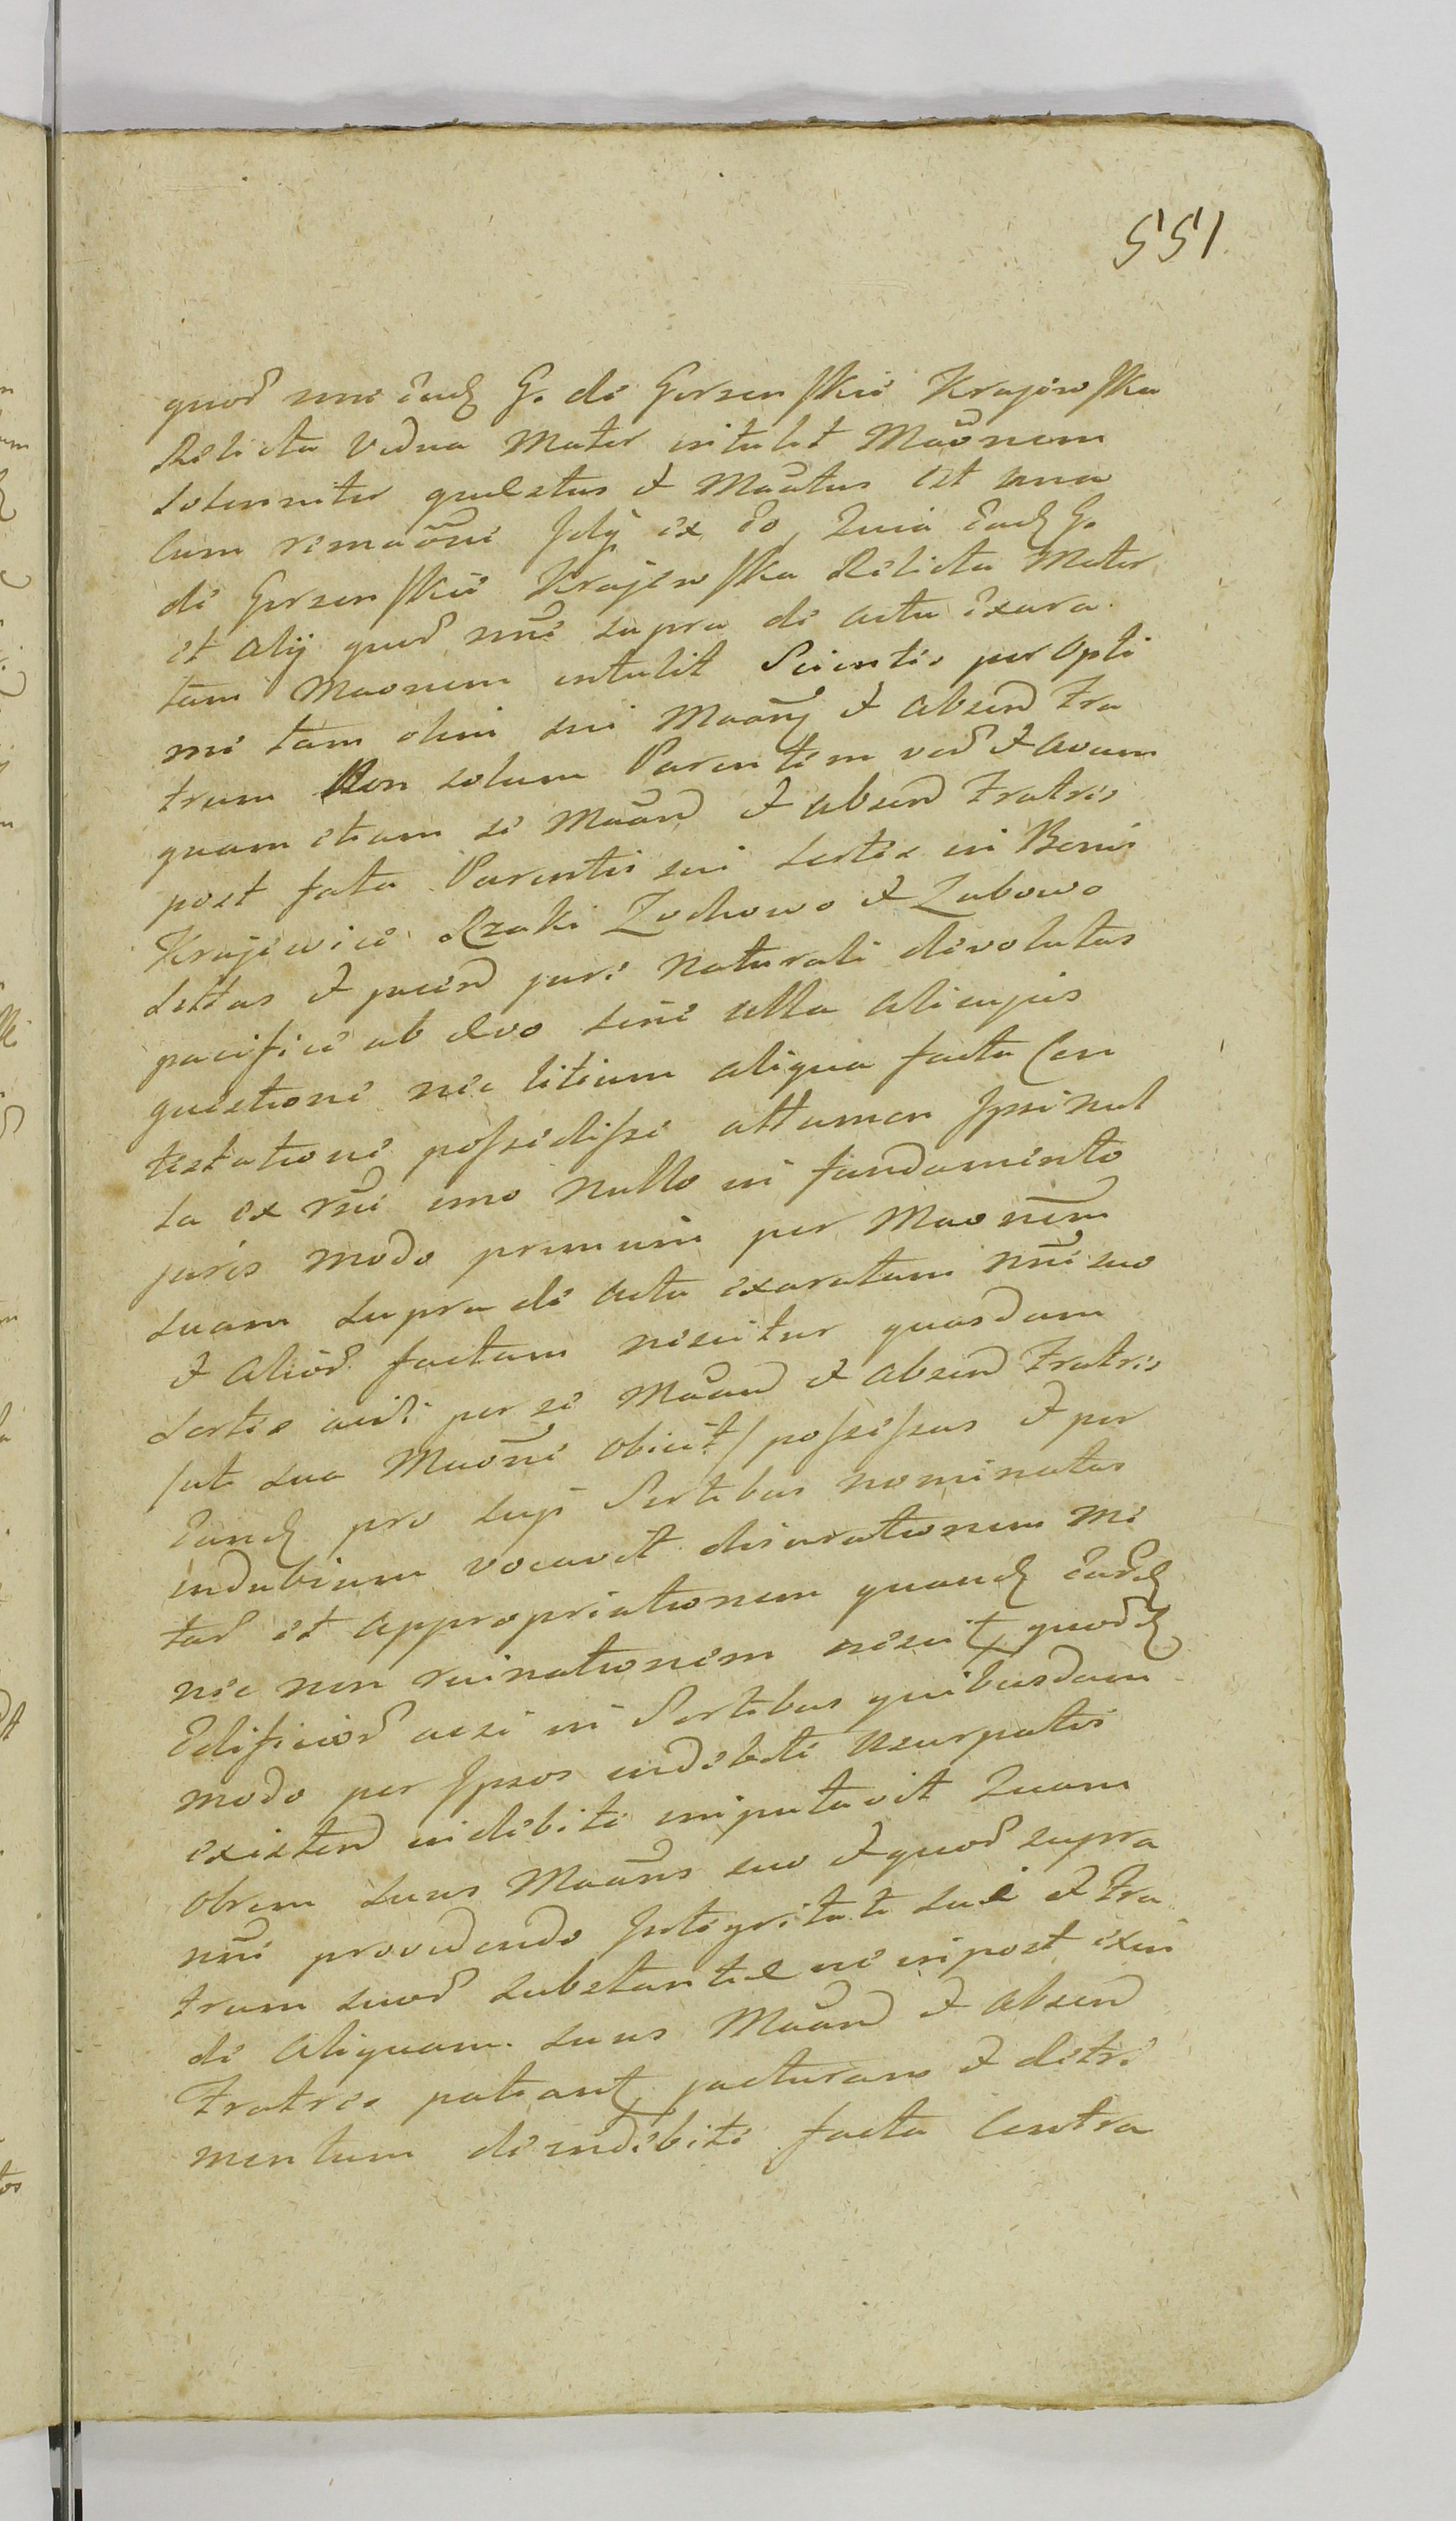 551
quod sme ead G. de Gorzenskie Krajewska
Relicta Vidua Mater intulit Maonem
Solenniter quaestus et Maatus est una
cum remaone Idq ex Eo, Quia Ead G.
de Gorzenskie Krajewska Relicta Mater
et alij quod nne supra de actu Exara
tam Maonem intulit Scientes per opti
me tam olim sui Maan et absen Fra
trum Non solum Parentem ved et avum
quam etiam se Maan et absen Fratres
post fata Parentis sui Sortes in Bonis
Krajewice Rzaki Zochowo et Zabowo
dictas et jure naturali devolutas
pacifice ab Evo sine ulla alicujus
questione nec litium aliqua facta Con
testatione possedisse attamen Ipsi nul
la ex rne imo nullo in fundamento
juris modo primum per Maonem
suam supra de actu exaratam nne suo
et aliod factam nescitur quasdam
Sortes acsi per se Maan et absen Fratres
/uti sua Maone obicit/ possessas et per
Eand pro suis Sortibus nominatas
indubium vocavit disarationem Me
tad et appropriationem quand Eard
nec non ruinationem nescit quord
Edificiod acsi in Sortibus quibusdam
modo per Ipsos indebite usurpatis
existen indebite imputavit Quam
obrem suus Maans suo et quod supra
nne providendo Integritate suae et Fra
trum suod substantiae ne inpost exin
de aliquam suus Maan et absen
Fratres patiant jacturam et detri
mentum de indebite facta Contra